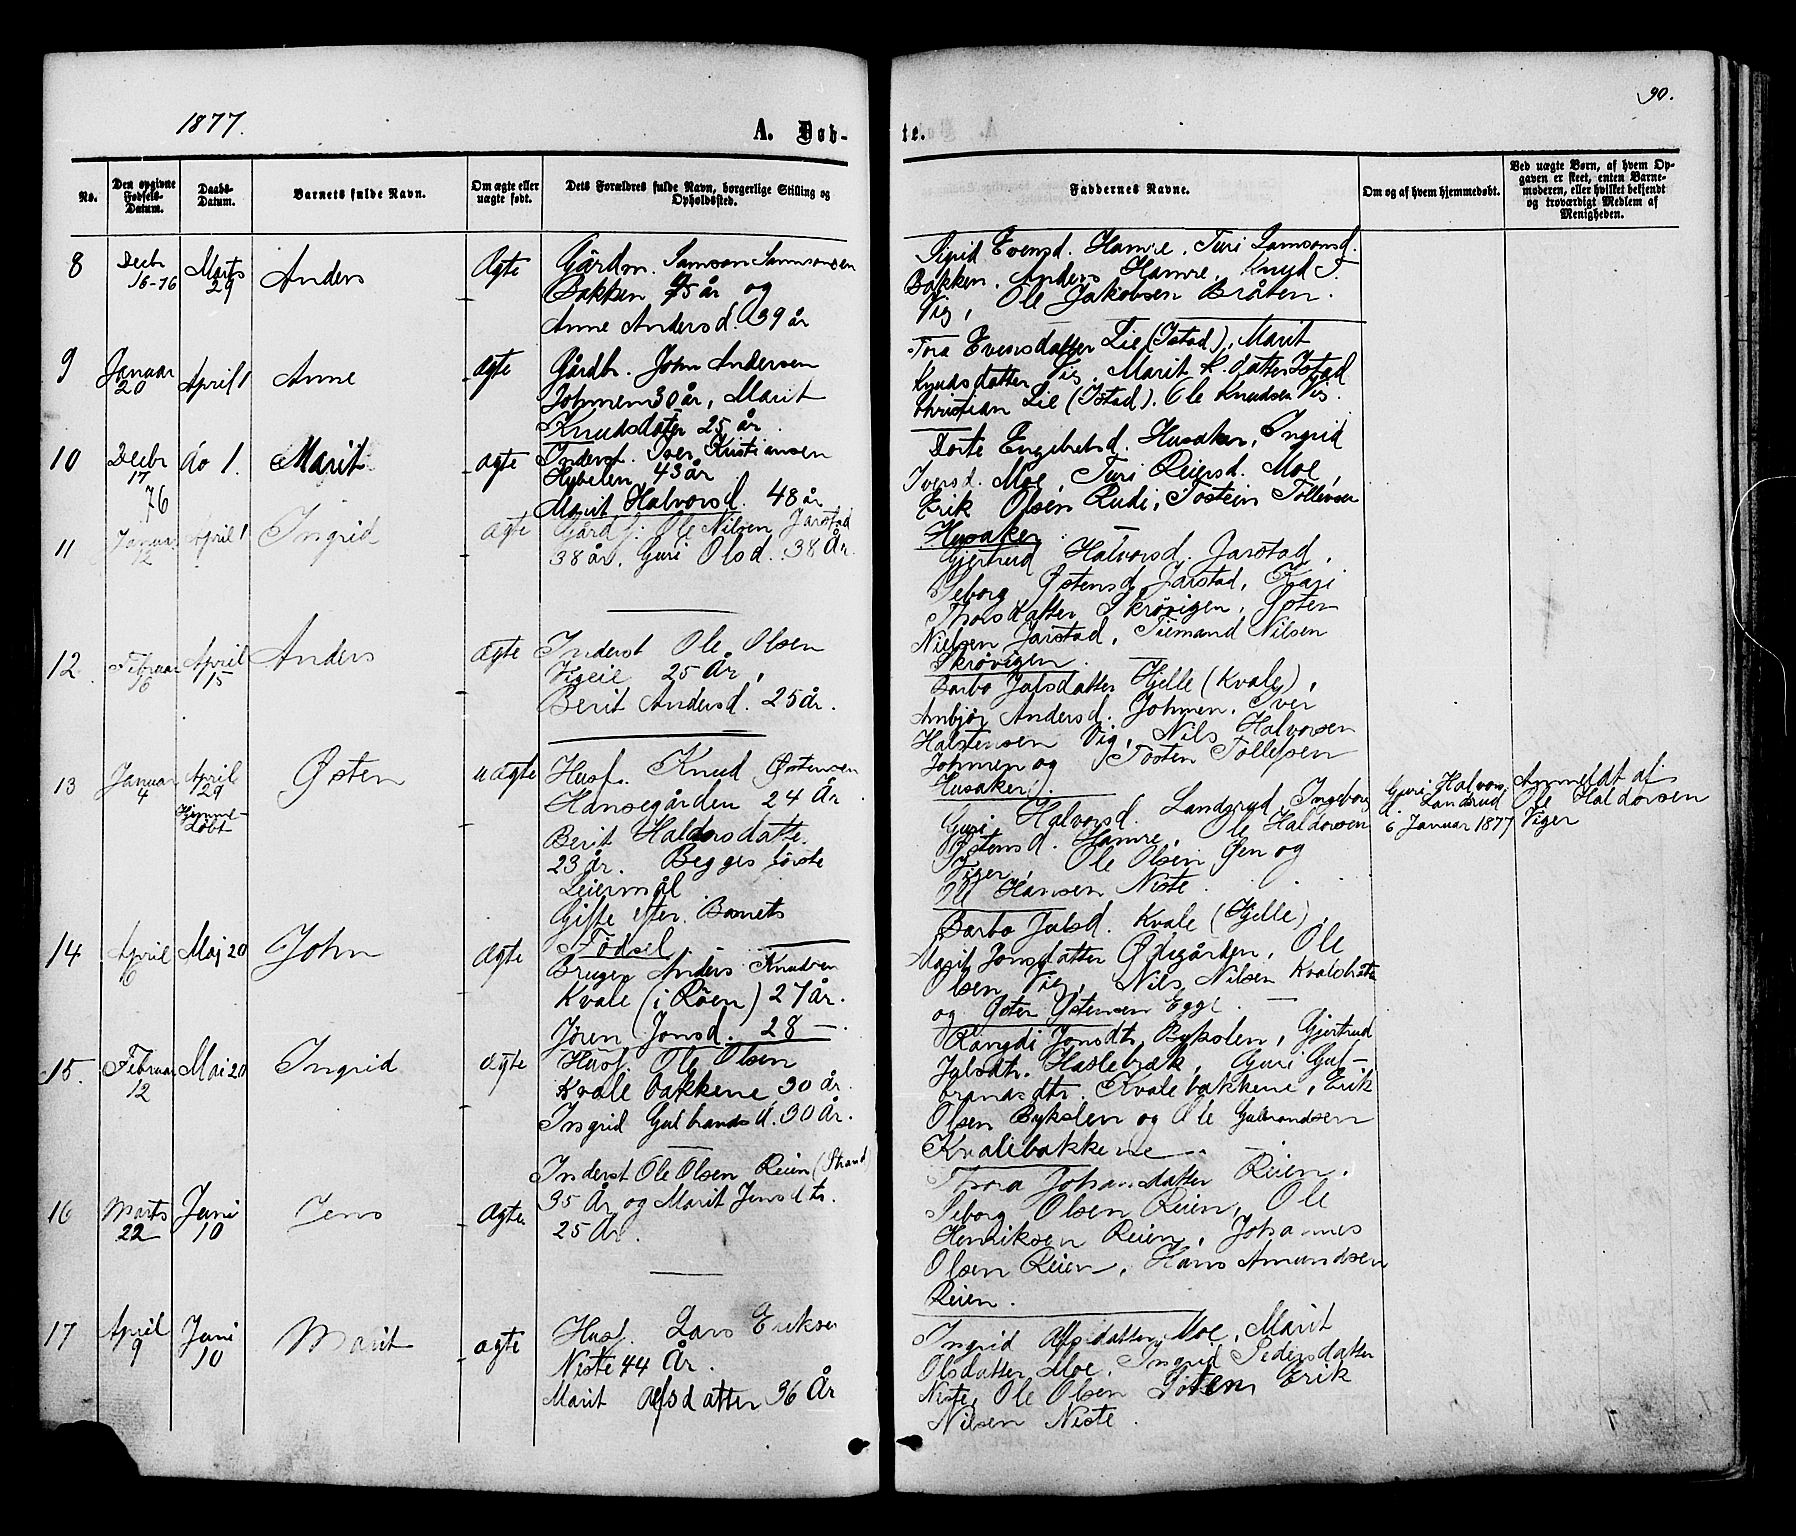 1877.
90.
A. Døb-
te.
No.
Den opgivne Fødsels-Datum.
Daabs-Datum.
Barnets fulde Navn.
Om ægte eller uægte født.
Dets Forældres fulde Navn, borgerlige Stilling og Opholdssted.
Faddernes Navne.
Om og af hvem hjemmedøbt.
Ved uægte Børn, af hvem Opgaven er skeet, enten Barnemoderen, eller hvilket bekjendt og troværdigt Medlem af Menigheden.
8 Decbr 16-76 Marts 29 Anders Ægte
Gårdm. Samson Samsonsen
Bakken 75 år og
Anne Andersd. 39 år
Sigrid Evensd. Hamre. Turi Samsonsd.
Bakken. Anders Hamre. Knud T.
Vig, Ole Jakobsen Bråten.
9 Januar 20 April 1 Anne ægte
Gårdbr. John Andersen
Johnsen 30 år, Marit
Knudsdatter 25 år.
Tora Evensdatter Lie (Istad), Marit
Knudsdatter Vig, Marit K.datter Istad
Christian Lie (Istad). Ole Knudsen Vig.
10 Decbr 17 76 do 1. Marit ægte
Inderst. Iver Kristiansen
43 år
Marit Halvorsd. 48 år
Dorte Engebretsd. Husaker, Ingrid
Iversd. Moe, Turi Reiersd. Moe,
Erik Olsen Rudi, Tostein Tollevsen
Husaker
11 Januar 12 April 1 Ingrid ægte
Gårdf. Ole Nilsen Jarstad
38 år, Guri Olsd. 38 År.
Gjertrud Halvorsd. Jarstad,
Seborg Østensd. Jarstad, Kari
Thorsdatter Skrøvigen, Østen
Nielsen Jarstad, Tiemand Nilsen
Skrøvigen.
12. Februar 16 April 15 Anders Ægte
Inderst Ole Olsen
Vigeie 25 År,
Berit Andersd. 25 år.
Barbo Julsdatter Hjelle (Kvale),
Anbjør Andersd. Johnsen. Iver
Halstensen Vig, Nils Halvorsen
Johnsen og Tosten Tollefsen
Husaker.
13 Januar 4 April 29 Hjemmedøbt Østen uægte
Husf. Knud Østensen
Hansegården 24 År.
Berit Haldorsdatte.
23 år. Begges første
Leiermål
Gifte efter Barnets
Fødsel
Guri Halvorsd. Landgrud, Ingeborg
Østensd. Hamre, Ole Haldorsen
Viger, Ole Olsen Gen og
Ole Hansen Niste.
Guri Halvors
d. Landrud
6 Januar 1877
Anmeldt af
Ole Haldorsen
Viger
14 April 6 Maj 20 John Ægte
Bruger Anders Knudsen
Kvale (i Röen) 27 år.
Jøren Jonsd. 28 —.
Barbo Julsd. Kvale (Hjelle),
Marit Jonsdatter Ødegården, Ole
Olsen Vig, Nils Nilsen
og Østen Østensen Egge.
15. Februar 12 Mai 20 Ingrid ægte
Husf. Ole Olsen
Kvale bakkene 30 år.
Ingrid Gulbrandsd. 30 År.
Rangdi Jonsdtr. Bykslen, Gjertrud
Julsdtr. Haslebræk, Guri Gul-
brandsdtr. Kvalebakkene, Erik
Olsen Bykslen og Ole Gulbrandsen
Kvalebakkene.
16 Marts 22 Juni 10 Jens Ægte
Inderst Ole Olsen Reien (Strand)
35 År og Marit Jensdtr.
25 År.
Thora Johansdatter Reien.
Seborg Olsen Reien, Ole
Henriksen Reien, Johannes
Olsen Reien, Hans Amundsen
Reien.
17 April 9 Juni 10 Marit ægte
Husf. Lars Eriksen
Niste 44 År.
Marit Alfsdatter 36 År
Ingrid Alfsdatter Moe, Marit
Olsdatter Moe, Ingrid Pedersdatter
Niste, Ole Olsen Erik
Nilsen Niste.